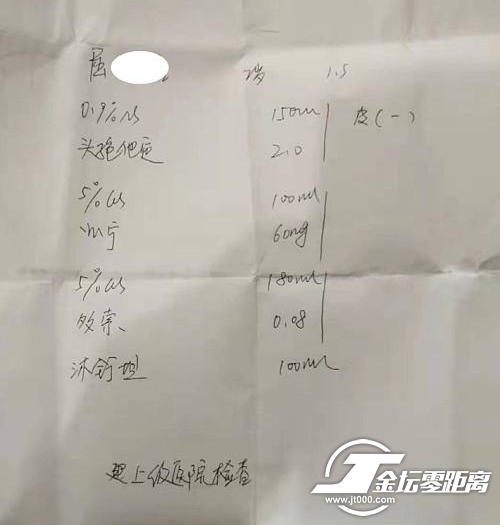 屈 岁 1.5
0.9%NS 150ml 皮(一)
头孢他定 2.0
5%GS 100ml
60mg
5%GS 180ml
0.08
沐舒坦 100ml
上级医院检查
金坛零距离
www.jt000.com